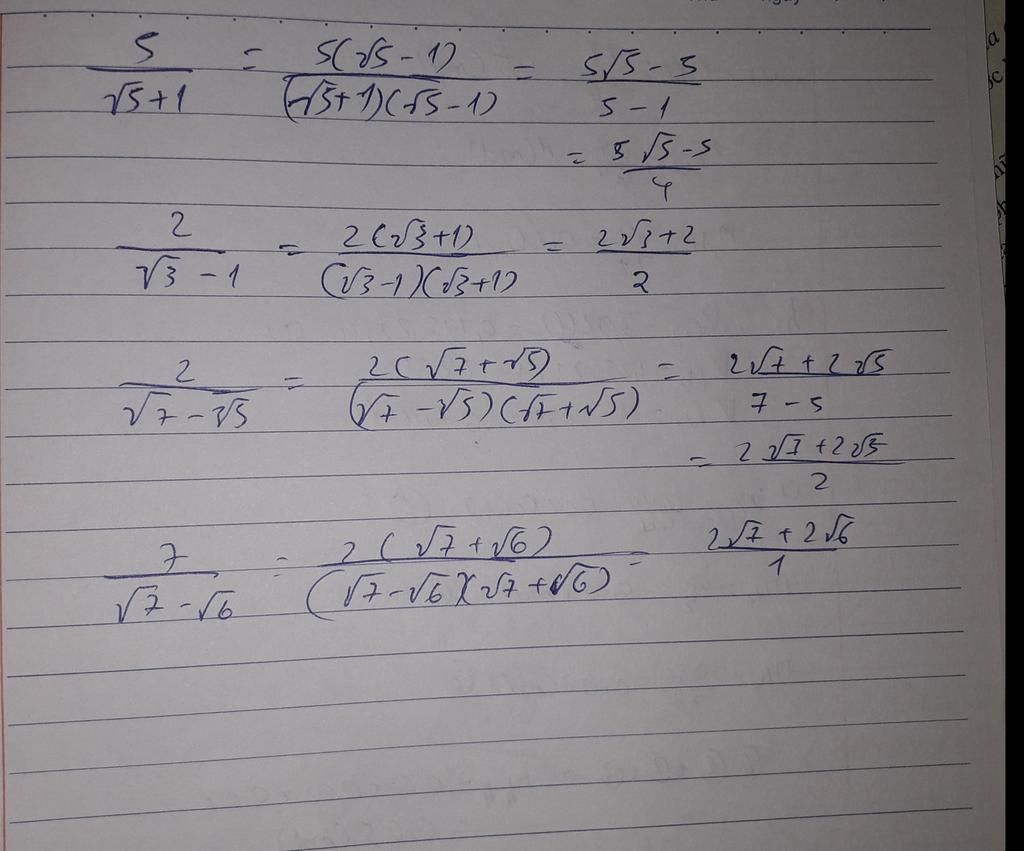 5/(√5+1) = 5(√5-1)/((√5+1)(√5-1)) = (5√5-5)/(5-1)
= (5√5-5)/4
2/(√3-1) = 2(√3+1)/((√3-1)(√3+1)) = (2√3+2)/2
2/(√7-√5) = 2(√7+√5)/((√7-√5)(√7+√5)) = (2√7+2√5)/(7-5)
= (2√7+2√5)/2
7/(√7-√6) = 2(√7+√6)/((√7-√6)(√7+√6)) = (2√7+2√6)/1